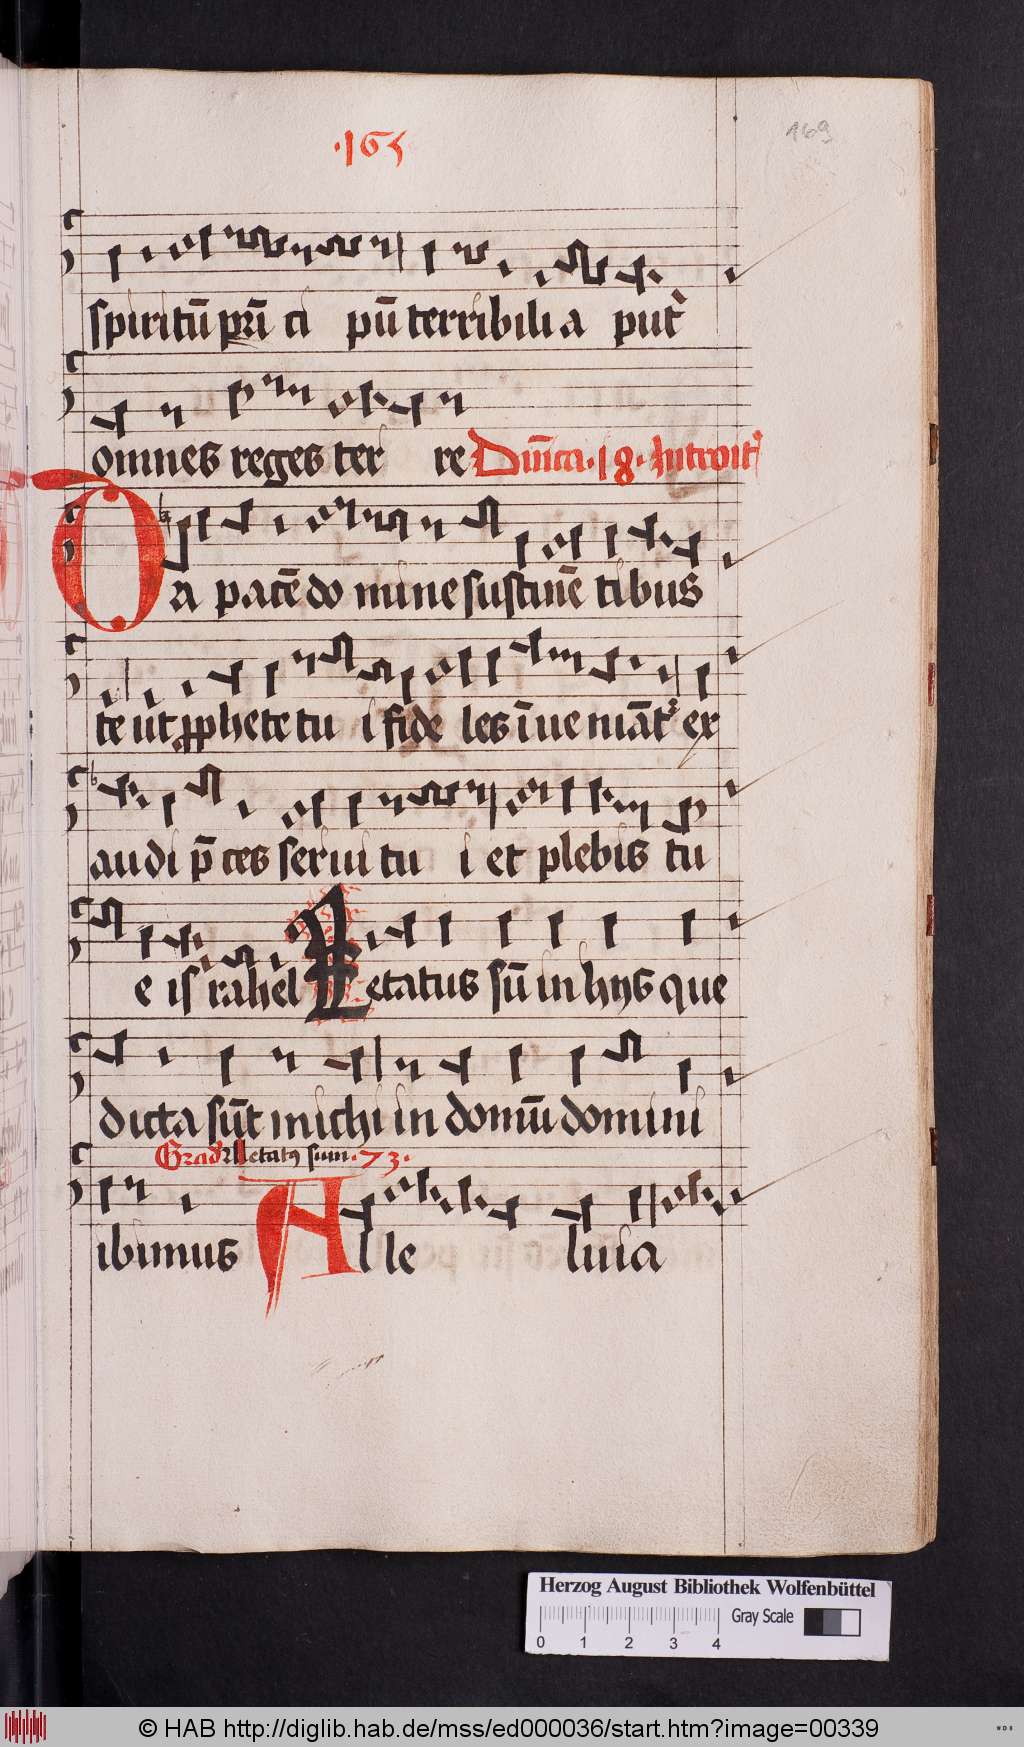 ·165
169
spiritū pri ci pū terribili a put
omnes reges ter re Dn̄ica·18·Introit9
Da pacē do mine sustinē tibus
te ut pphete tu i fide les īue niāt ex
audi p̄ ces serui tu i et plebis tu
e is rahel Letatus sū in hys que
dicta sūt michi in domū domini
Grad Letat9 sum·73·
ibimus Alle luia
Herzog August Bibliothek Wolfenbüttel
Gray Scale
0 1 2 3 4
© HAB http://diglib.hab.de/mss/ed000036/start.htm?image=00339